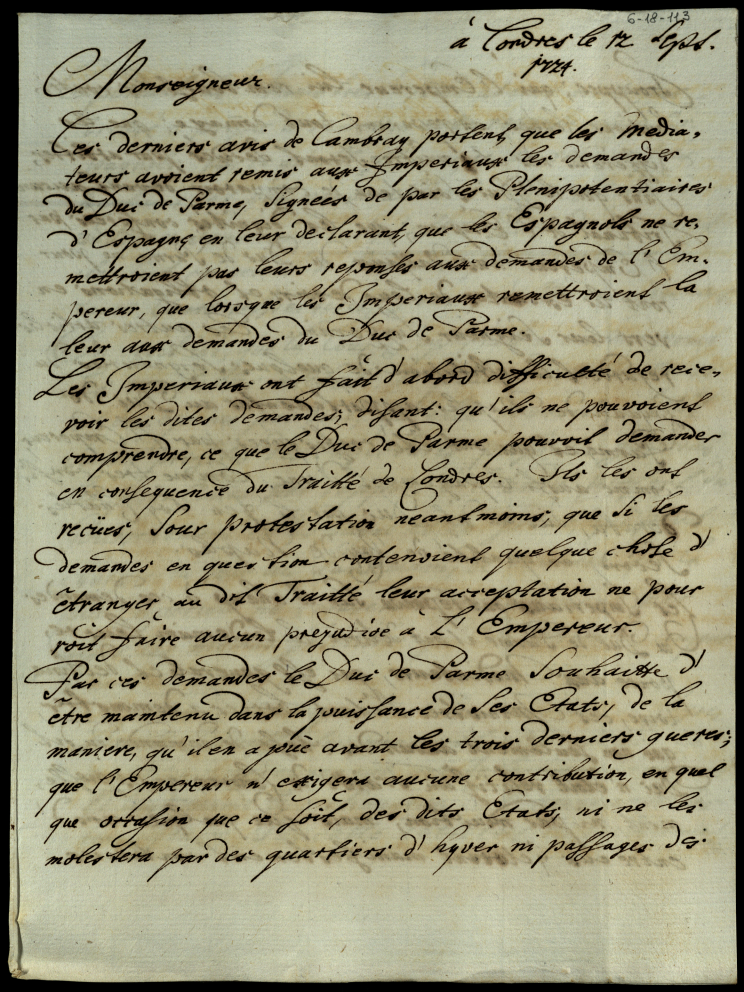 6-18-113
à Londres le 12 Sept.
1724.
Monseigneur.
Les derniers avis de Cambray portent, que les Media-
teurs avoient remis aux Imperiaux les demandes
du Duc de Parme, signeés de par les Plenipotentiaires
d'Espagne, en leur declarant, que les Espagnols ne re-
mettroient pas leurs reponses aux demandes de l'Em-
pereur, que lorsque les Imperiaux remettroient la
leur aux demandes du Duc de Parme.
Les Imperiaux ont fait d'abord difficulté de rece-
voir les dites demandes; disant: qu'ils ne pouvoient
comprendre, ce que le Duc de Parme pouvoit demander
en consequence du Traitté de Londres. Ils les ont
recües, sour protestation neantmoins, que si les
demandes en question contenoient quelque chose d'
êtranger au dit Traitté leur acceptation ne pour
roit faire aucun prejudice à L'Empereur.
Par ces demandes le Duc de Parme souhaitte d'
être maintenu dans la puissance de ses Etats, de la
maniere, qu'il en a joüe avant les trois derniers gueres;
que l'Empereur n'exigera aucune contribution, en quel
que occasion que ce soit, des dits Etats, ni ne les
molestera par des quartiers d'hyver ni passages des